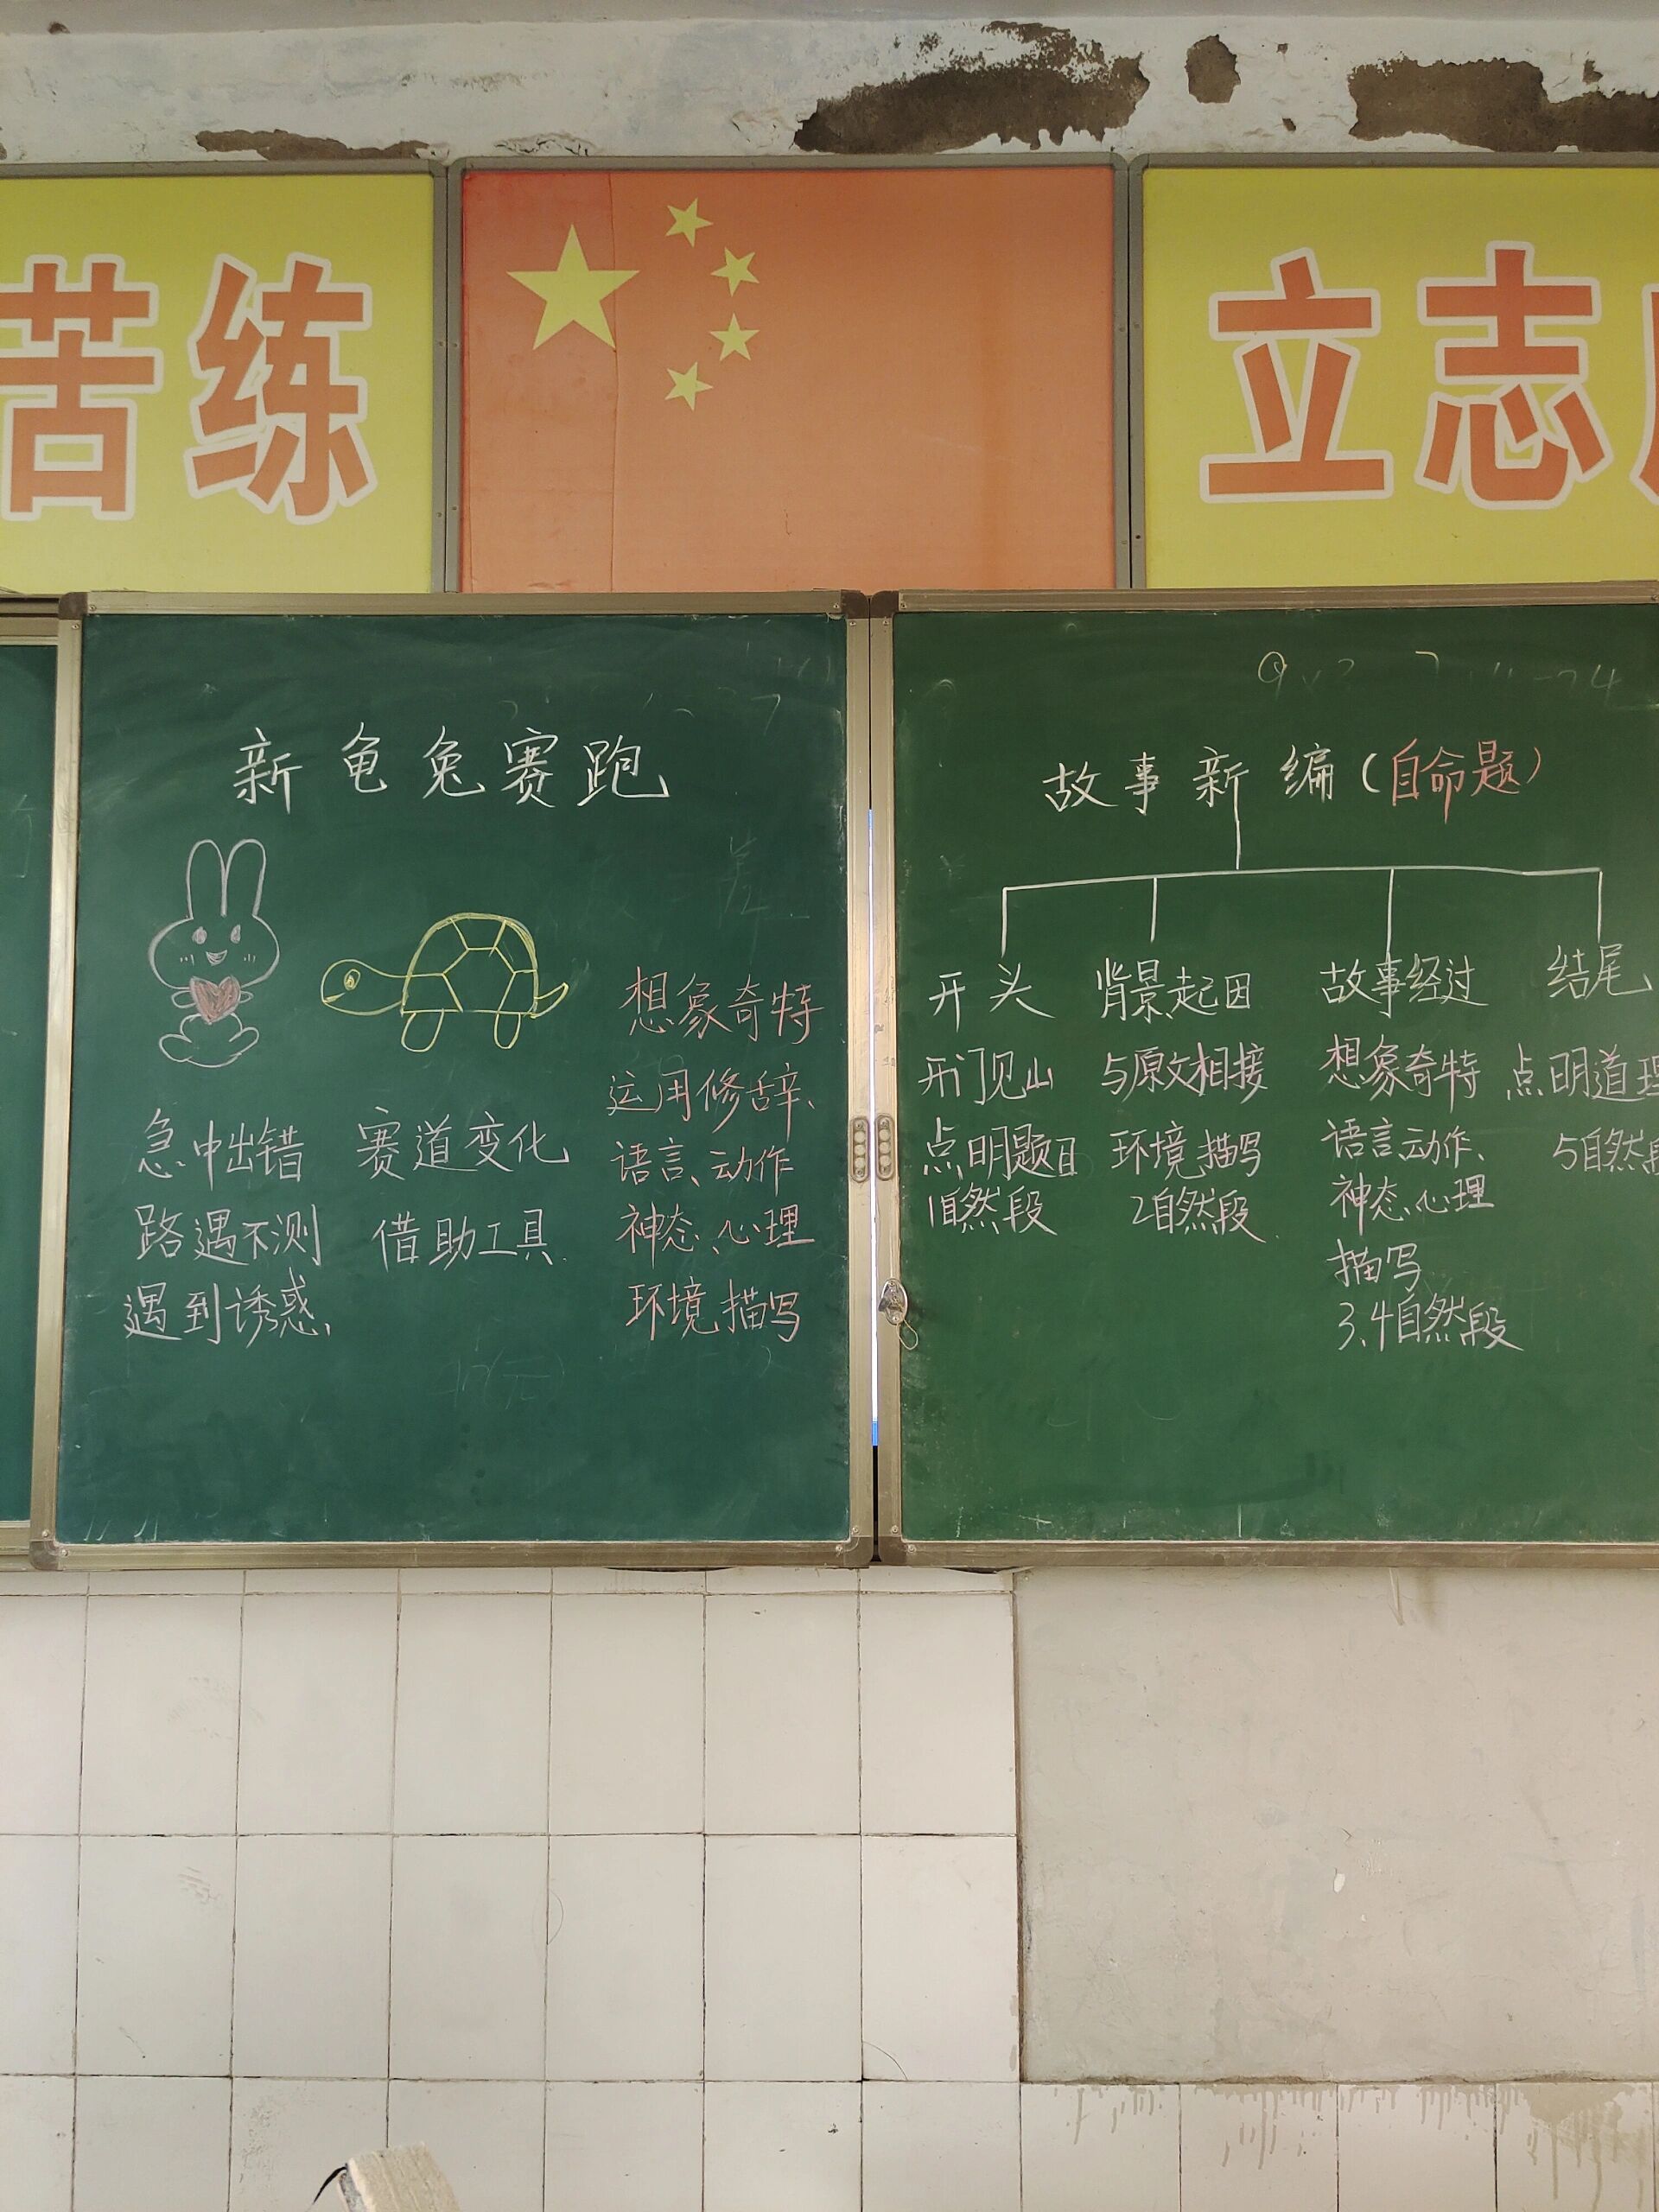 苦练
立志
新龟兔赛跑
急中出错
路遇不测
遇到诱惑、
赛道变化
借助工具
想象奇特
运用修辞、
语言、动作
神态、心理
环境描写
故事新编(自命题)
开头
开门见山
点明题目
1自然段
背景起因
与原文相接
环境描写
2自然段
故事经过
想象奇特
语言、动作、
神态、心理
描写
3、4自然段
结尾
点明道理
5自然段